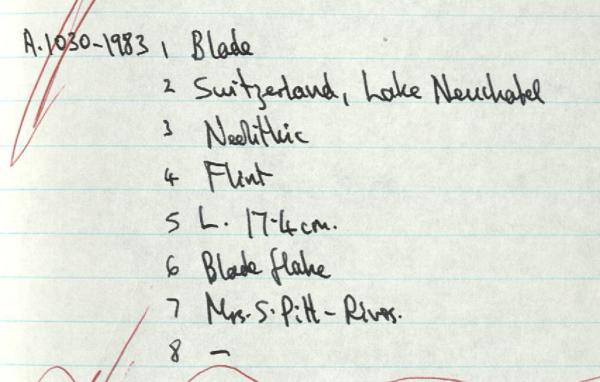 A.1030-1983 1 Blade
2 Switzerland, Lake Neuchatel
3 Neolithic
4 Flint
5 L. 17.4cm.
6 Blade flake
7 Mrs. S. Pitt-Rivers.
8 —